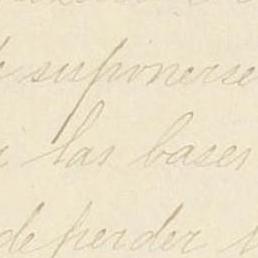 suponerse
las bases
de perder